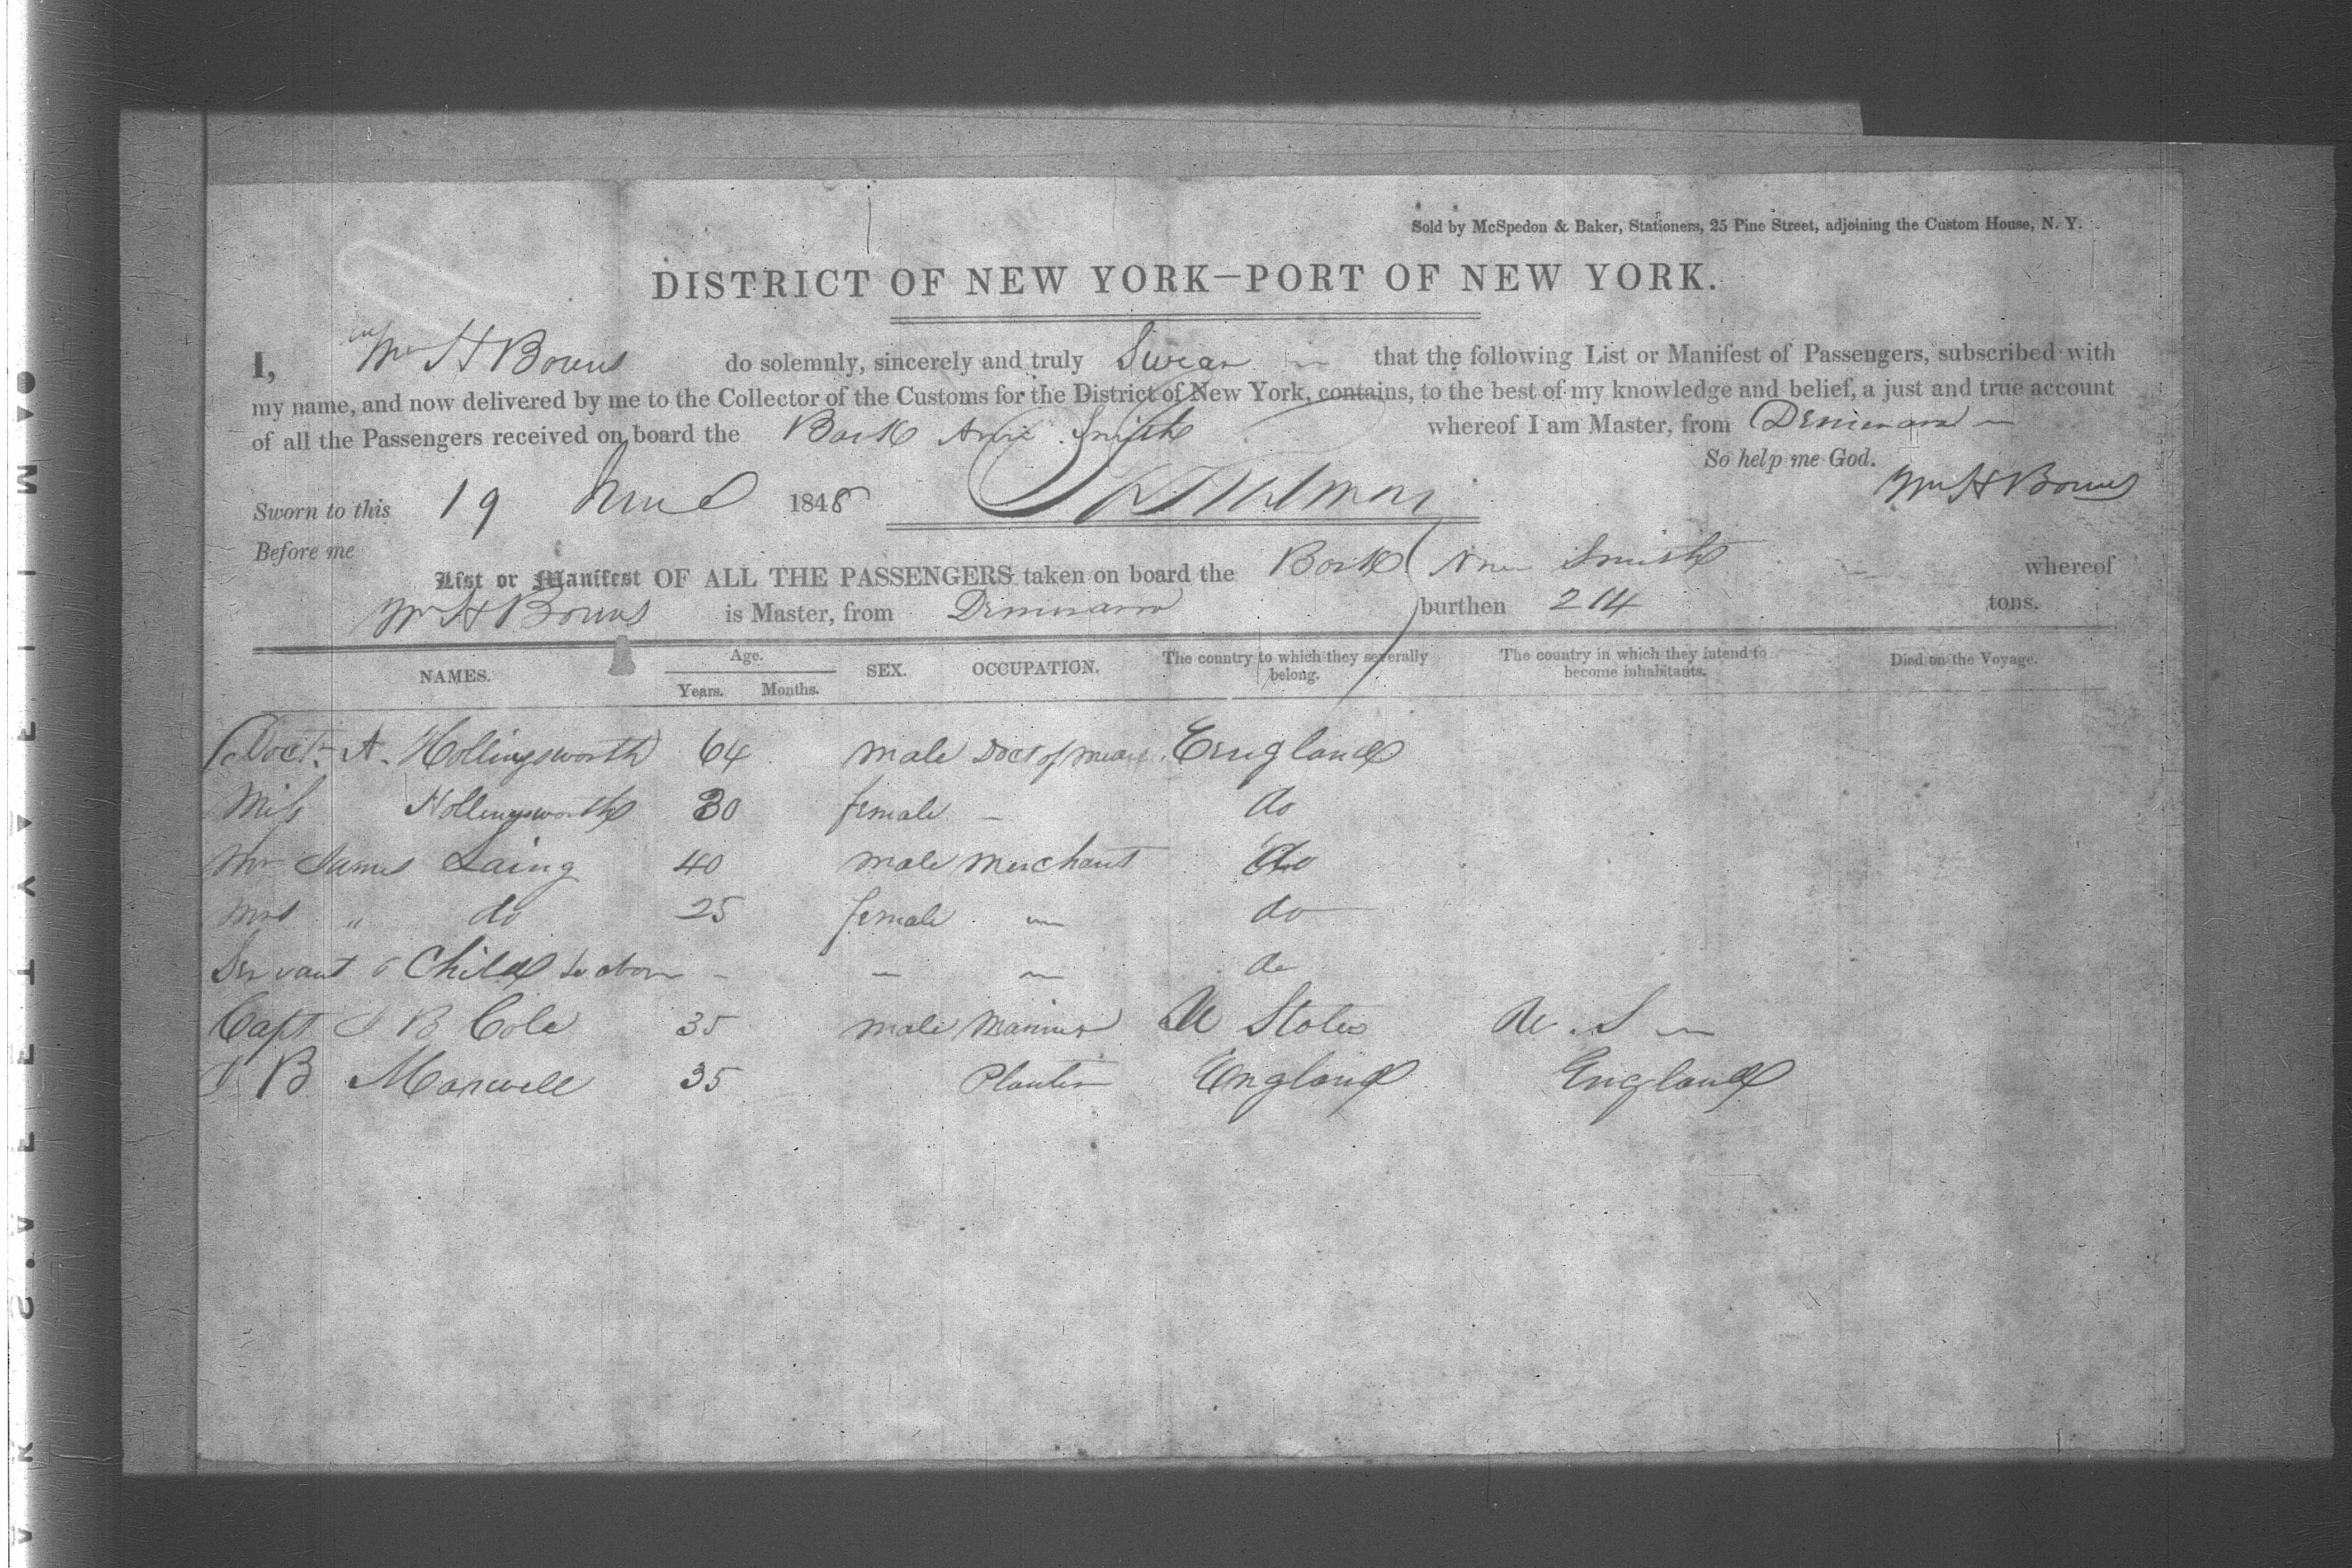 Sold by McSpedon & Baker, Stationers, 25 Pine Street, adjoining the Custom House, N. Y.
DISTRICT OF NEW YORK—PORT OF NEW YORK.
I, Wm H Bowns do solemnly, sincerely and truly Swear that the following List or Manifest of Passengers, subscribed with
my name, and now delivered by me to the Collector of the Customs for the District of New York, contains, to the best of my knowledge and belief, a just and true account
of all the Passengers received on board the Bark Ann Smith whereof I am Master, from Demerara
So help me God.
Sworn to this 19 June 1848 Wm H Bowns
Before me
List or Manifest OF ALL THE PASSENGERS taken on board the Bark Ann Smith whereof
Wm H Bowns is Master, from Demerara burthen 214 tons.
NAMES. Age. Years. Months. SEX. OCCUPATION. The country to which they severally belong. The country in which they intend to become inhabitants. Died on the Voyage.
Doct. A. Hollingsworth 64 male Doct of England
Miss Hollingsworth 30 female — do
Mr James Laing 40 male Merchant do
Mrs " do 25 female — do
Servant & Child to above — — — do
Capt J B Cole 35 male Mariner U States U. S —
J B Maxwell 35 Planter England England